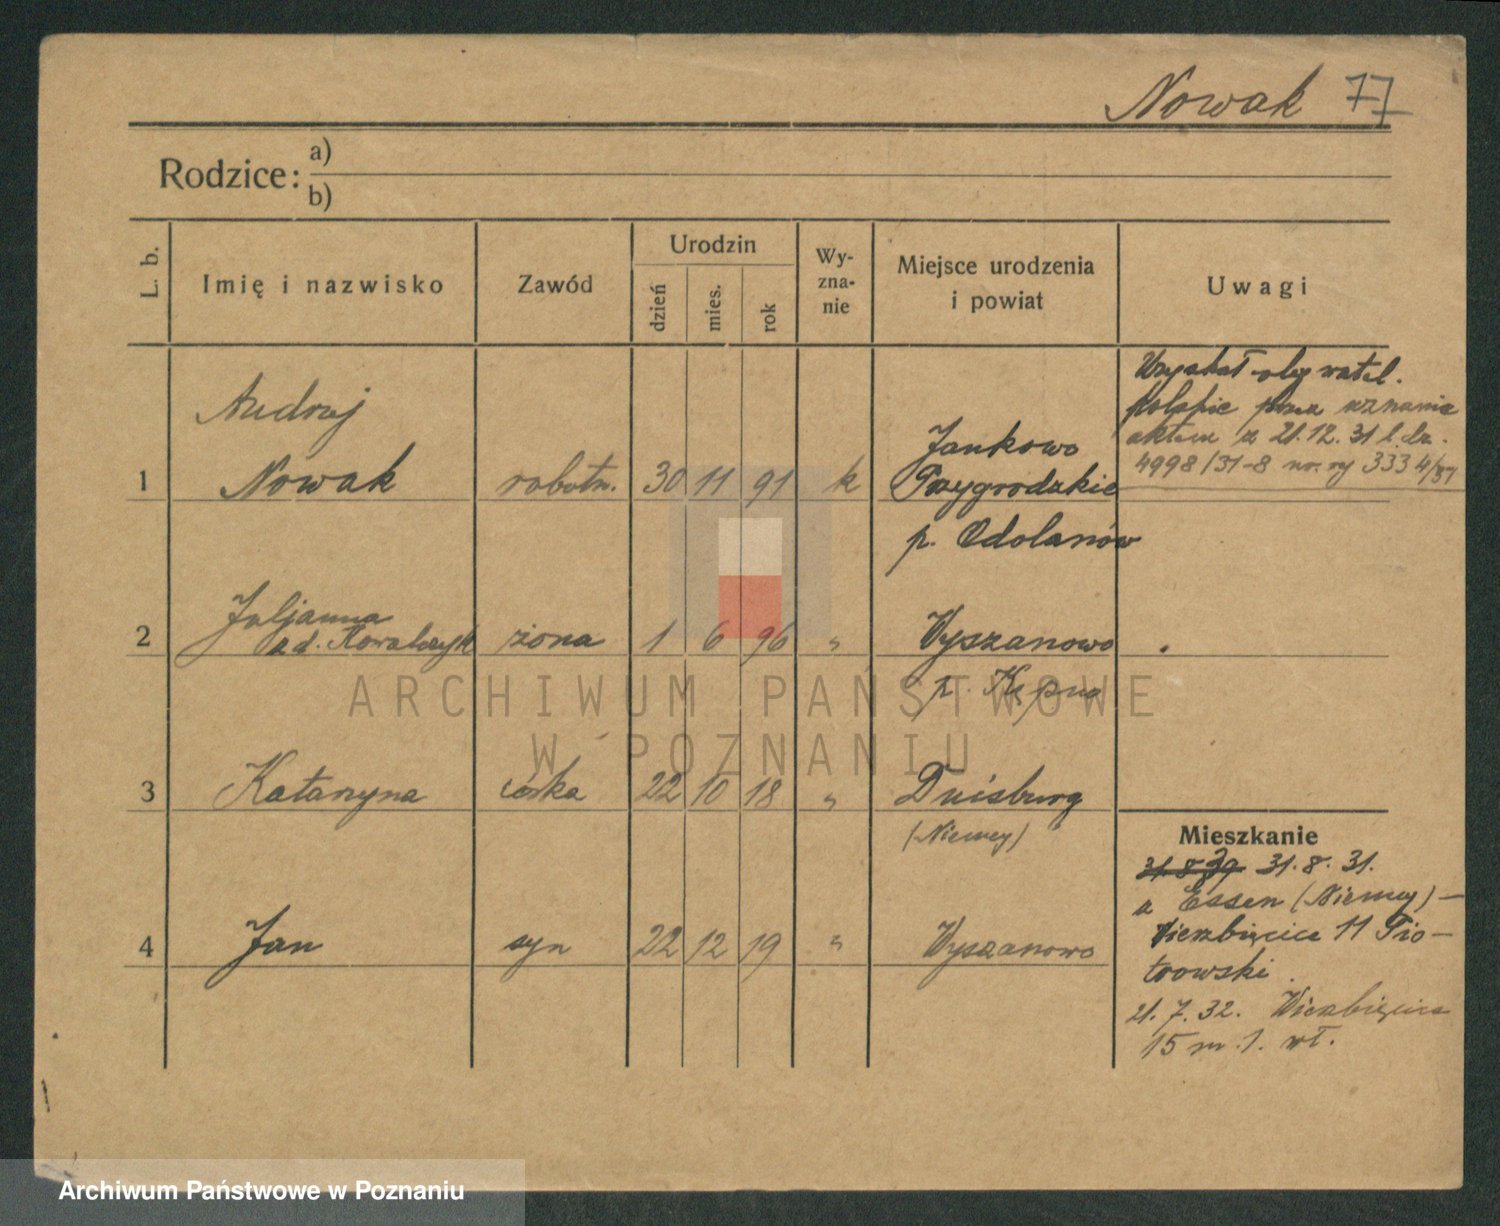 Nowak 77
Rodzice: a)
b)
L. b.
Imię i nazwisko
Zawód
Urodzin
dzień
mies.
rok
Wy-
zna-
nie
Miejsce urodzenia
i powiat
Uwagi
Uzyskał obywatel.
polskie przez uznanie
aktem z 21.12.31 l.dz.
4998/31-8 nr. rej 3334/31
Andrzej
1 Nowak robotn. 30 11 91 k
Jankowo
Przygrodzkie
p. Odolanów
Juljanna
2 z d. Kowalczyk żona 1 6 96 " Wyszanowo
p. Kępno
ARCHIWUM PAŃSTWOWE
W POZNANIU
3 Katarzyna córka 22 10 18 " Duisburg
(Niemcy)
4 Jan syn 22 12 19 " Wyszanowo
Mieszkanie
31.8.31.
z Essen (Niemcy) –
Wierzbięcice 11 Pio–
trowski.
21.7.32. Wierzbięcice
15 m.1. wł.
Archiwum Państwowe w Poznaniu